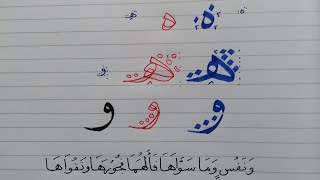 ه ه ه ه
هـ هـ و
و و و
وَنَفْسٍ وَمَا سَوَّاهَا فَأَلْهَمَهَا فُجُورَهَا وَتَقْوَاهَا